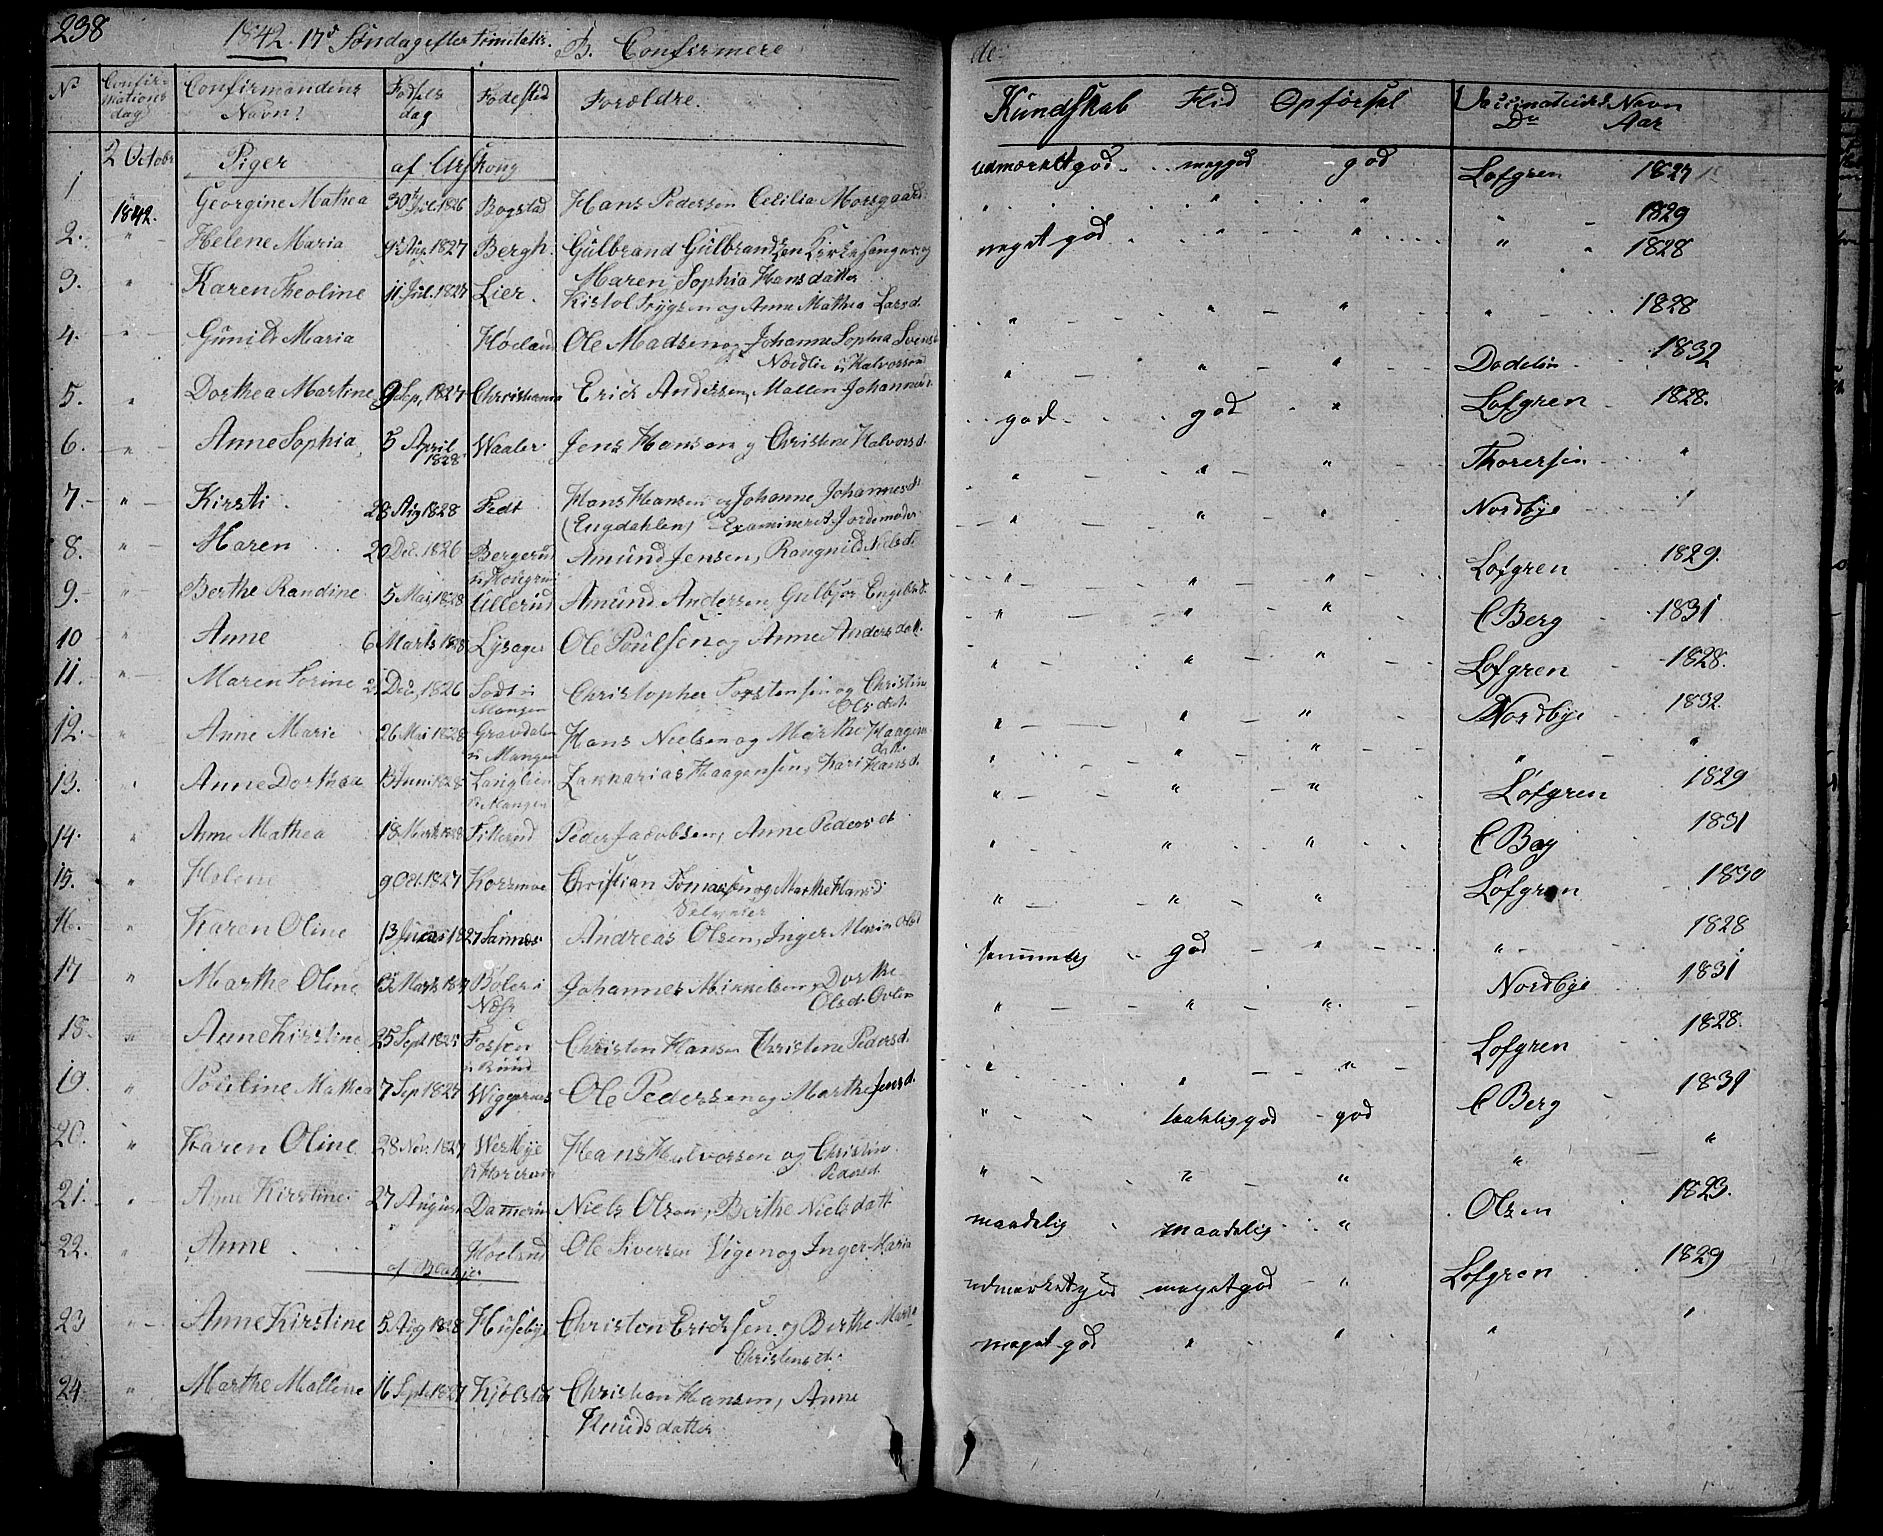 238
1842. 17d Søndag efter Trinitatis. B. Confirmere de
No Confirmations dag Confirmandens Navn Fødsels dag Fødested Forældre. Kundskab Flid Opførsel Vaccinateurs Navn Dn Aar
2 Octobr 1842. Piger af Urskoug
1 Georgine Mathea 30t Jul. 1826 Bogstad Hans Pedersen Cecilia Morsgaard udmærket god meg god god Lofgren 1827
2. " Helene Maria 9d Aug. 1827 Bergh. Gulbrand Gulbrandsen Kirkesanger og Maren Sophia Hansdatter " " " " 1829
3. " Karen Theoline 11 Jul. 1827 Lier. Kristol Trygsen og Anne Mathea Larsd. meget god " " " 1828
4. " Gunild Maria Høeland Ole Madsen og Johanne Sophia Svensd Nordlie i Halvorsrud " " " " 1828
5. " Dorthea Martine 9 Sep, 1827 Christiania Erick Andersen, Mallen Johannesd. " " " Dødelin 1832
6. " Anne Sophia 5 April 1828 Waaler Jens Hansen og Christine Halvorsd. god god " Lofgren 1828.
7. " Kirsti 28 Aug 1828 Fedt Hans Hansen og Johanne Johannesd. (Engdahlen) Examineret Jordemoder " " " Thoresen "
8. " Maren 20 Dec. 1826 Bergerud Amund Jensen, Rangnild Nielsd. " " " Nordbye "
9. " Berthe Randine 5 Mai, 1828 Ullerud Amund Andersen, Gulbjør Engebrd. " " " Lofgren 1829.
10 " Anne 6 Marts 1828 Lysager Ole Poulsen og Anne Andersdatt. " " " C Berg 1831
11. " Maren Sorine 2 Dec, 1826 Mangen Christopher Torstensen og Christine Olsdat. " " " Lofgren 1828.
12. " Anne Marie 26 Mai 1828 Gravdalen i Mangen Hans Nielsen og Marthe Haagensdatt. " " " Nordbye 1832.
13. " Anne Dorthea 13 Juni 1828 Langlien i Mangen Zakkarias Haagensen, Kari Hansd. " " " " "
14. " Anne Mathea 18 Marts 1828 Peder Jacobsen, Anne Pedersdt. " " " Lofgren 1829
15. " Helene 9 Oct. 1827 Korsmoe Christian Tomassen og Marthe Hansd " " " C Berg 1831
16. " Karen Oline 13 1827 Sannes Andreas Olsen, Inger Maria Olsd " " " Lofgren 1830
17 " Marthe Oline Marts Bøler i Næs Johannes Mikkelsen, Dorthe Olsd. temmelig god " " 1828
18. " Anne Kirstine 25 Sept Fossen Christen Hansen Christine Pedersd. " " " Nordbye 1831
19. " Pouline Mathea 7 Sep 1827 Wiggernes Ole Pedersen og Marthe Jensd. " " " Lofgren 1828.
20. " Karen Oline 28 Nov. 1827 Westbye Hans Halvorsen og Christine Pedersd. " taalelig god god C Berg 1831
21. " Anne Kirstine 27 August Damerud Niels Olsen, Berthe Nielsdatt " " " " "
22. " Anne Høeland Ole Siversen Vigen og Inger Maria maadelig maadelig " Olsen 1823.
af Blakjer
23 " Anne Kirstine 5 Aug 1828 Husebye Christen Ericksen og Berthe Marie Christensdt. udmærket god meget god " Lofgren 1829
24. " Marthe Mallene 16 Sept. 1827 Kjølstad Christian Hansen, Anne Knudsdatter meget god " " " "